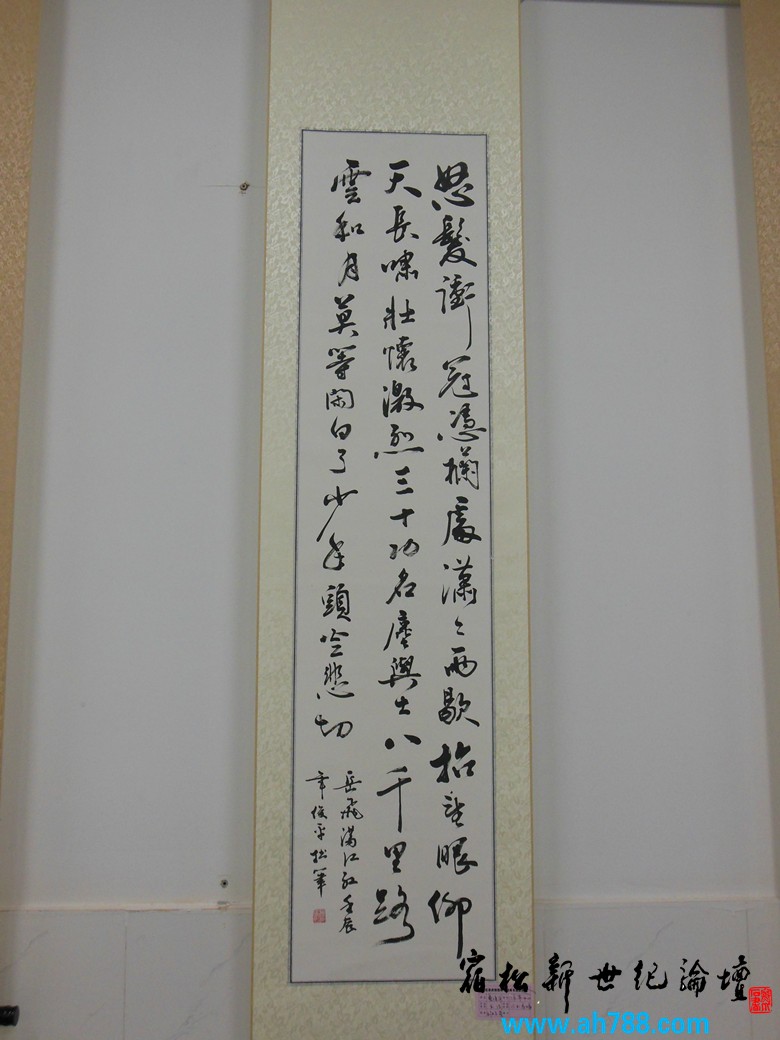 怒髮衝冠憑欄處瀟々雨歇抬望眼仰
天長嘯壯懷激烈三十功名塵與土八千里路
雲和月莫等閑白了少年頭空悲切
岳飛滿江紅壬辰
年俊平拙筆
宿松新世紀論壇
www.ah788.com